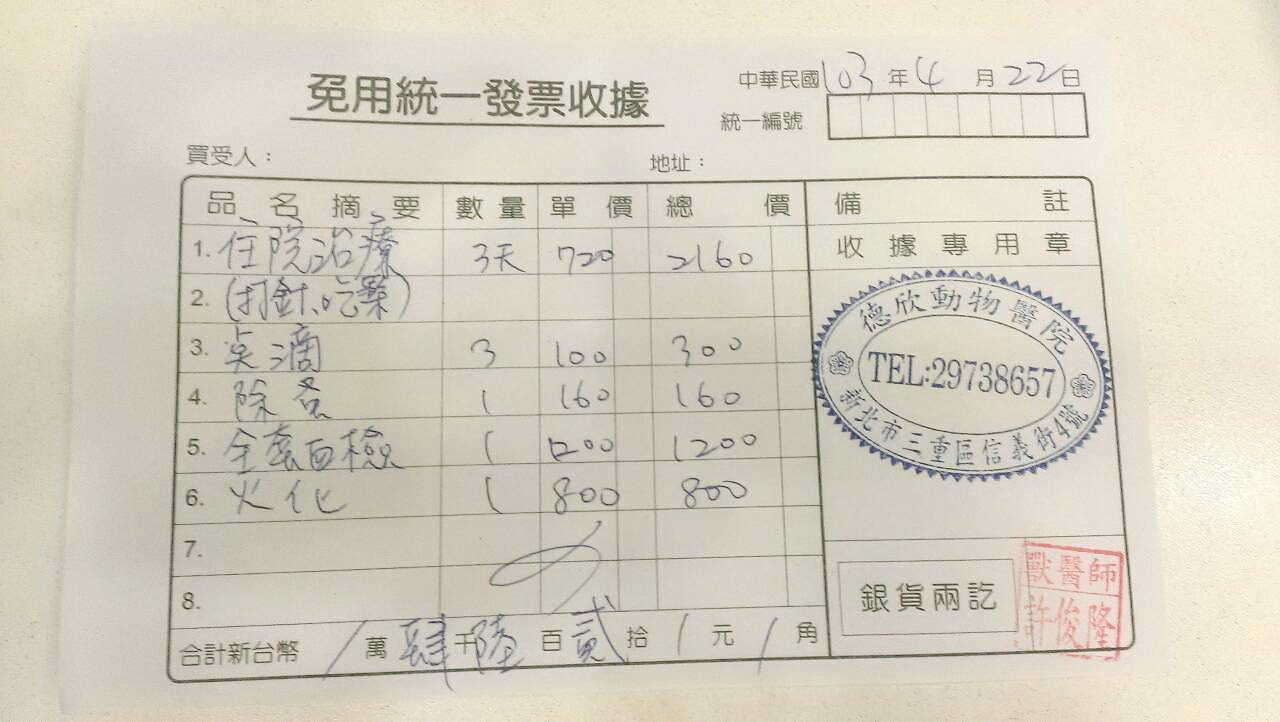 免用統一發票收據
中華民國103年4月22日
統一編號
買受人：
地址：
品名摘要 數量 單價 總價 備註
收據專用章
1. 住院治療 3天 720 2160
2. (打針、吃藥)
3. 点滴 3 100 300
4. 除蚤 1 160 160
5. 全套血檢 1 1200 1200
6. 火化 1 800 800
7.
8.
合計新台幣 / 萬肆千陸百貳拾 / 元 / 角
德欣動物醫院
TEL:29738657
新北市三重區信義街4號
銀貨兩訖
獸醫師
許俊隆